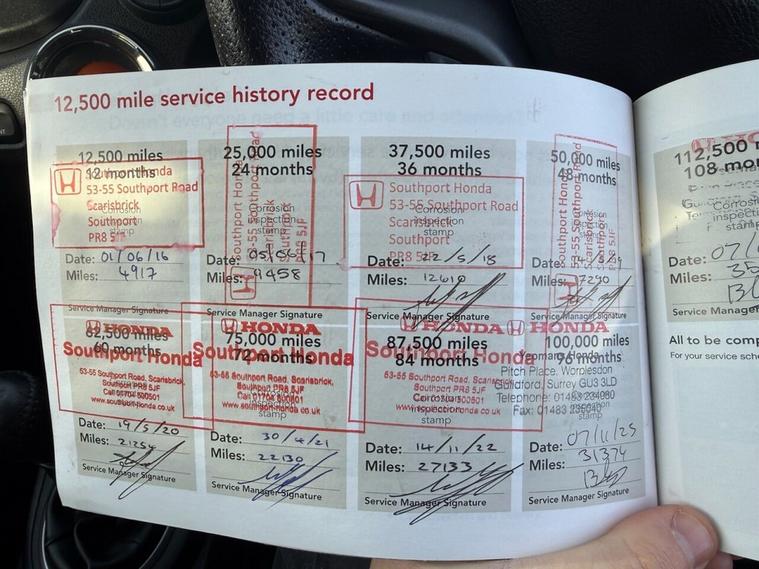 12,500 mile service history record
12,500 miles
12 months
Southport Honda
53-55 Southport Road
Scarisbrick
Southport
PR8 5
Corrosion
inspection
stamp
Date: 01/06/16
Miles: 4917
Service Manager Signature
25,000 miles
24 months
Southport Honda
53-55 Southport Road
Scarisbrick
Southport
PR8 5JF
Corrosion
inspection
stamp
Date:
Miles: 9458
Service Manager Signature
37,500 miles
36 months
Southport Honda
53-55 Southport Road
Scarisbrick
Southport
PR8 5
Corrosion
inspection
Date: 22/5/18
Miles: 12610
Service Manager Signature
50,000 miles
48 months
Southport Honda
53-55 Southport Road
Scarisbrick
Southport
PR8 5JF
Corrosion
inspection
stamp
Date:
Miles: 17290
Service Manager Signature
HONDA
62,500 miles
60 months
Southport Honda
53-55 Southport Road, Scarisbrick,
Southport PR8 5JF
Call 01704 500501
www.southport-honda.co.uk
Date: 19/5/20
Miles: 21254
Service Manager Signature
HONDA
75,000 miles
72 months
Southport Honda
53-55 Southport Road, Scarisbrick,
Southport PR8 5JF
Call 01704 500501
www.southport-honda.co.uk
stamp
Date: 30/4/21
Miles: 22130
Service Manager Signature
HONDA
87,500 miles
84 months
Southport Honda
53-55 Southport Road, Scarisbrick,
Southport PR8 5JF
inspection
stamp
Date: 14/11/22
Miles: 27133
Service Manager Signature
HONDA
100,000 miles
96 months
Honda
Pitch Place, Worplesdon
Guildford, Surrey GU3 3LD
Telephone: 01483 234080
Fax: 01483
stamp
Date: 07/11/25
Miles: 31374
Service Manager Signature
112,500
108
Date: 07/
Miles:
Service Manager Signature
All to be comp
For your service sche